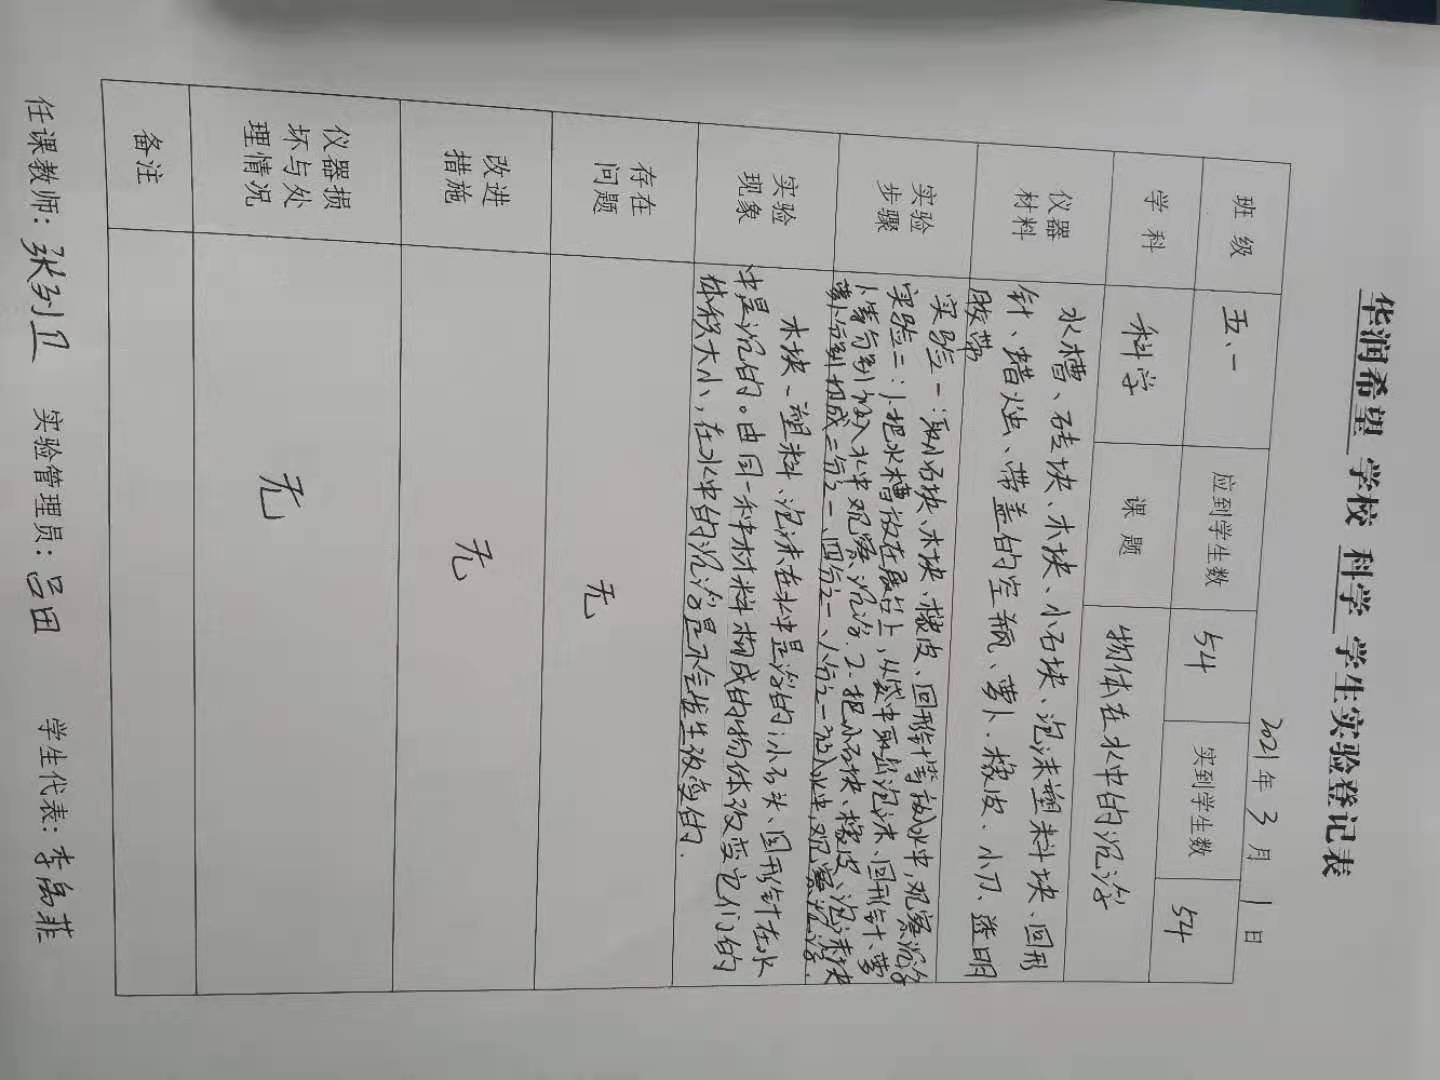 华润希望 学校 科学 学生实验登记表
2021年 3 月 1 日
班级 五、一 应到学生数 54 实到学生数 54
学科 科学 课题 物体在水中的沉浮
仪器材料
水槽、砖块、木块、小石块、泡沫塑料块、回形
针、蜡烛、带盖的空瓶、萝卜、橡皮、小刀、透明
胶带
实验步骤
实验一:取小石块、木块、橡皮、回形针等放入水中,观察沉浮
实验二:1.把水槽放在展台上,从袋中取出泡沫、回形针、萝
卜等分别放入水中观察沉浮.2.把小石块、橡皮、泡沫块
萝卜分别切成二分之一、四分之一、八分之一放入水中,观察沉浮.
实验现象
木块、塑料、泡沫在水中是浮的;小石头、回形针在水
中是沉的。由同一种材料构成的物体改变它们的
体积大小,在水中的沉浮是不会发生改变的.
存在问题 无
改进措施 无
仪器损坏与处理情况 无
备注
任课教师: 实验管理员:吕田 学生代表:李禹菲